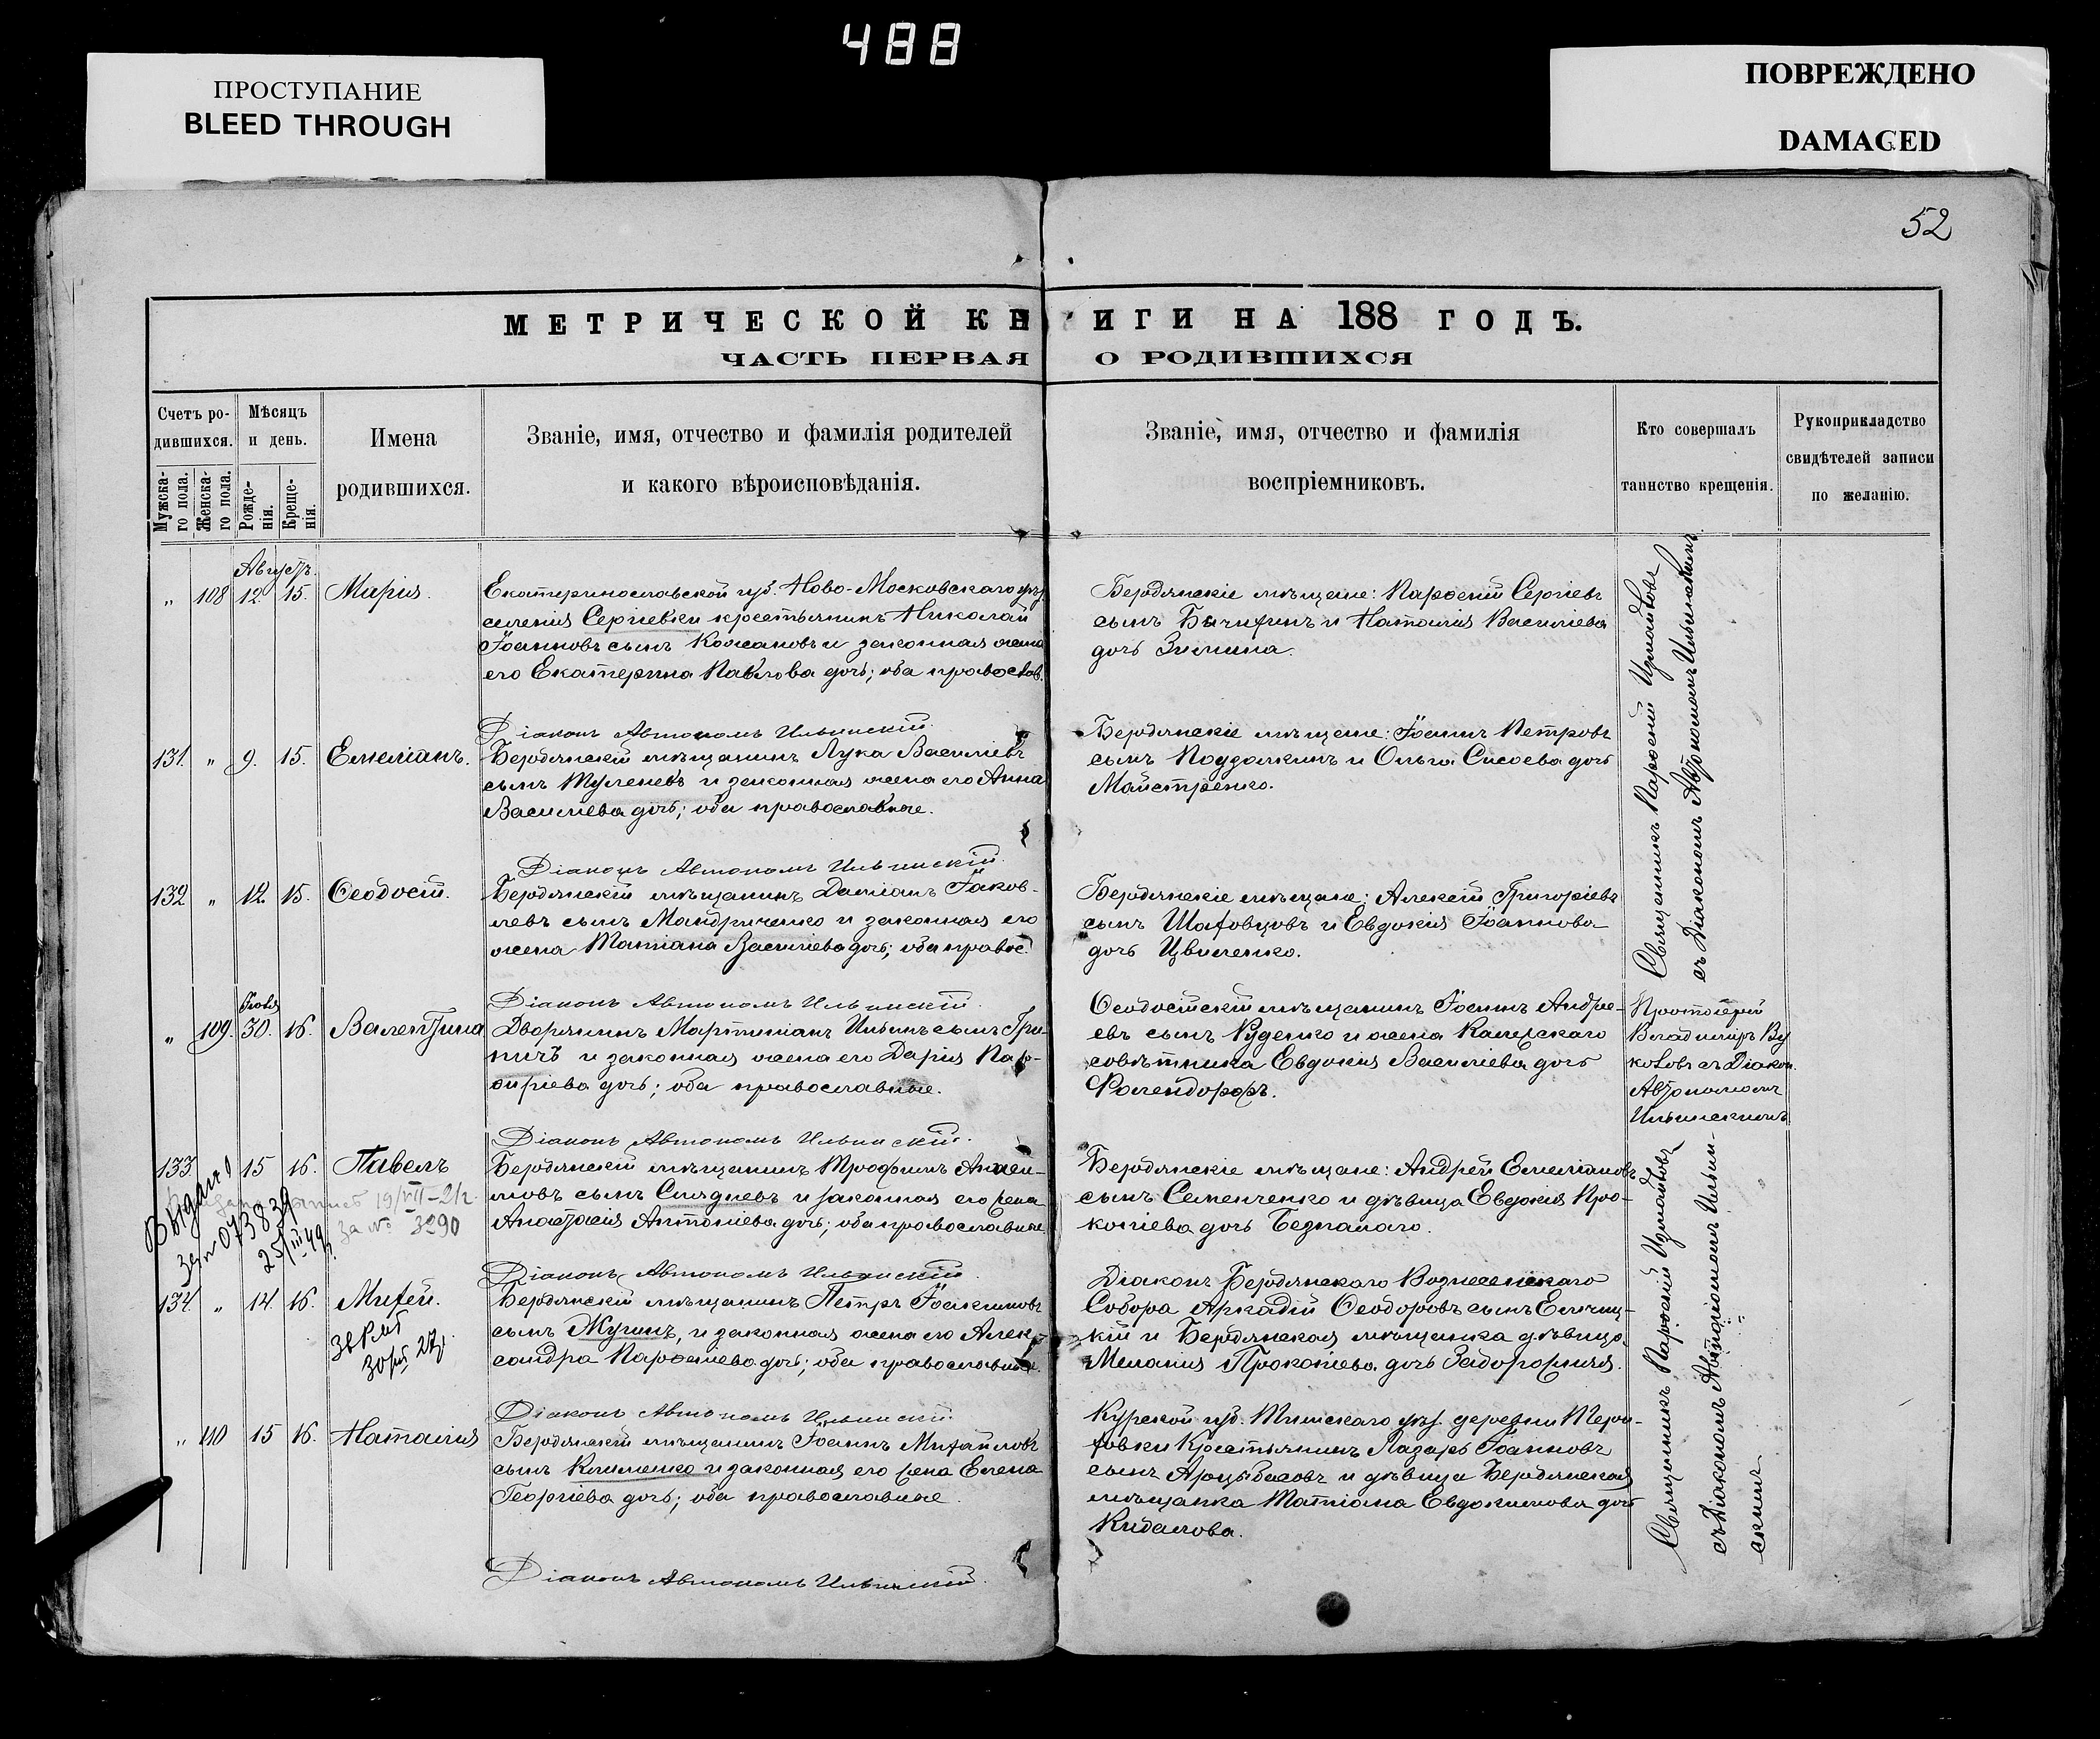 488
ПРОСТУПАНИЕ
BLEED THROUGH
ПОВРЕЖДЕНО
DAMAGED
52
МЕТРИЧЕСКОЙ КНИГИ НА 188 ГОДЪ.
ЧАСТЬ ПЕРВАЯ О РОДИВШИХСЯ
Счетъ ро-
дившихся.
Мужска-
го пола.
Женска-
го пола.
Мѣсяцъ
и день.
Рожде-
нія.
Креще-
нія.
Имена
родившихся.
Званіе, имя, отчество и фамилія родителей
и какого вѣроисповѣданія.
Званіе, имя, отчество и фамилія
воспріемниковъ.
Кто совершалъ
таинство крещенія.
Рукоприкладство
свидѣтелей записи
по желанію.
Августъ.
„ 108 12. 15. Марія.
Екатеринославской губ. Ново-Московскаго уѣз.
селенія Сергіевки крестьянинъ Николай
Іоанновъ сынъ Кожановъ и законная жена
его Екатерина Павлова дочь; оба православ.
Бердянскіе мѣщане: Парѳеній Сергіевъ
сынъ и Наталія Василіева
дочь Зимина.
Діаконъ Автономъ Ильинскій.
131. „ 9. 15. Емеліанъ.
Бердянскій мѣщанинъ Лука Василіевъ
сынъ Туленевъ и законная жена его Анна
Василіева дочь; оба православные.
Бердянскіе мѣщане: Іоаннъ Петровъ
сынъ Поддалкинъ и Ольга Сисоева дочь
Майстренко.
Діаконъ Автономъ Ильинскій.
132 „ 12. 15. Ѳеодосій.
Бердянскій мѣщанинъ Даміанъ Іаков-
левъ сынъ Мандриченко и законная его
жена Татіана Василіева дочь; оба правос.
Бердянскіе мѣщане: Алексій Григоріевъ
сынъ Шаховцовъ и Евдокія Іоаннова
дочь Цвиленко.
Священникъ Парѳеній Измайловъ
съ Діакономъ Автономомъ Ильинскимъ.
Діаконъ Автономъ Ильинскій.
„ 109. 30. 16. Валентина
Дворянинъ Мартиніанъ Ильинъ сынъ Гри-
ничъ и законная жена его Дарія Пар-
фиріева дочь; оба православные.
Ѳеодосійскій мѣщанинъ Іоаннъ Андре-
евъ сынъ Руденко и жена Калежскаго
совѣтника Евдокія Василіева дочь
Фолендорфъ.
Протоіерей
Владиміръ Ву
ковъ съ Діакон.
Автономомъ
Ильинскимъ
Діаконъ Автономъ Ильинскій.
133 15 16. Павелъ
Бердянскій мѣщанинъ Трофимъ
сынъ и законная его жена
Анастасія Антоніева дочь; оба православные.
Бердянскіе мѣщане: Андрей Емеліановъ
сынъ Семенченко и дѣвица Евдокія Про-
копіева дочь Безналаго.
19/VII-21г.
за № 3290
Выдано
073839
25/III 49г.
Діаконъ Автономъ Ильинскій.
134. „ 14. 16. Михей.
Бердянскій мѣщанинъ Петръ Іоакимовъ
сынъ Жугинъ, и законная жена его Алек-
сандра Парѳеніева дочь; оба православные.
Діаконъ Бердянскаго Вознесенскаго
Собора Аркадій Ѳеодоровъ сынъ
кій и Бердянская мѣщанка дѣвица
Меланія Прокопіева дочь Задорожняя.
Діаконъ Автономъ Ильинскій.
„ 110 15 16. Наталія
Бердянскій мѣщанинъ Іоаннъ Михайловъ
сынъ Клименко и законная его жена Елена
Георгіева дочь; оба православные.
Курской губ. Тимскаго уѣз. деревни Теро-
ховки Крестьянинъ Лазарь Іоанновъ
сынъ Арцыбасовъ и дѣвица Бердянская
мѣщанка Татіана Евдокимова дочь
Кидалова.
Священникъ Парѳеній Измайловъ
съ Діакономъ Автономомъ Ильин-
скимъ.
Діаконъ Автономъ Ильинскій.